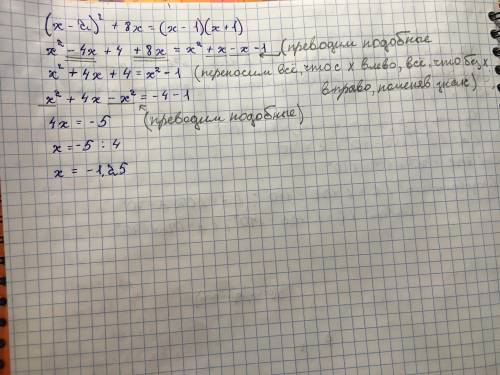 (x-2)² + 8x = (x-1)(x+1)
x² - 4x + 4 + 8x = x² + x - x - 1 (преводим подобное
x² + 4x + 4 = x² - 1 (переносим всё, что с x влево, всё, что без x
вправо, поменяв знак)
x² + 4x - x² = -4 - 1
4x = -5 (преводим подобные)
x = -5 : 4
x = -1,25